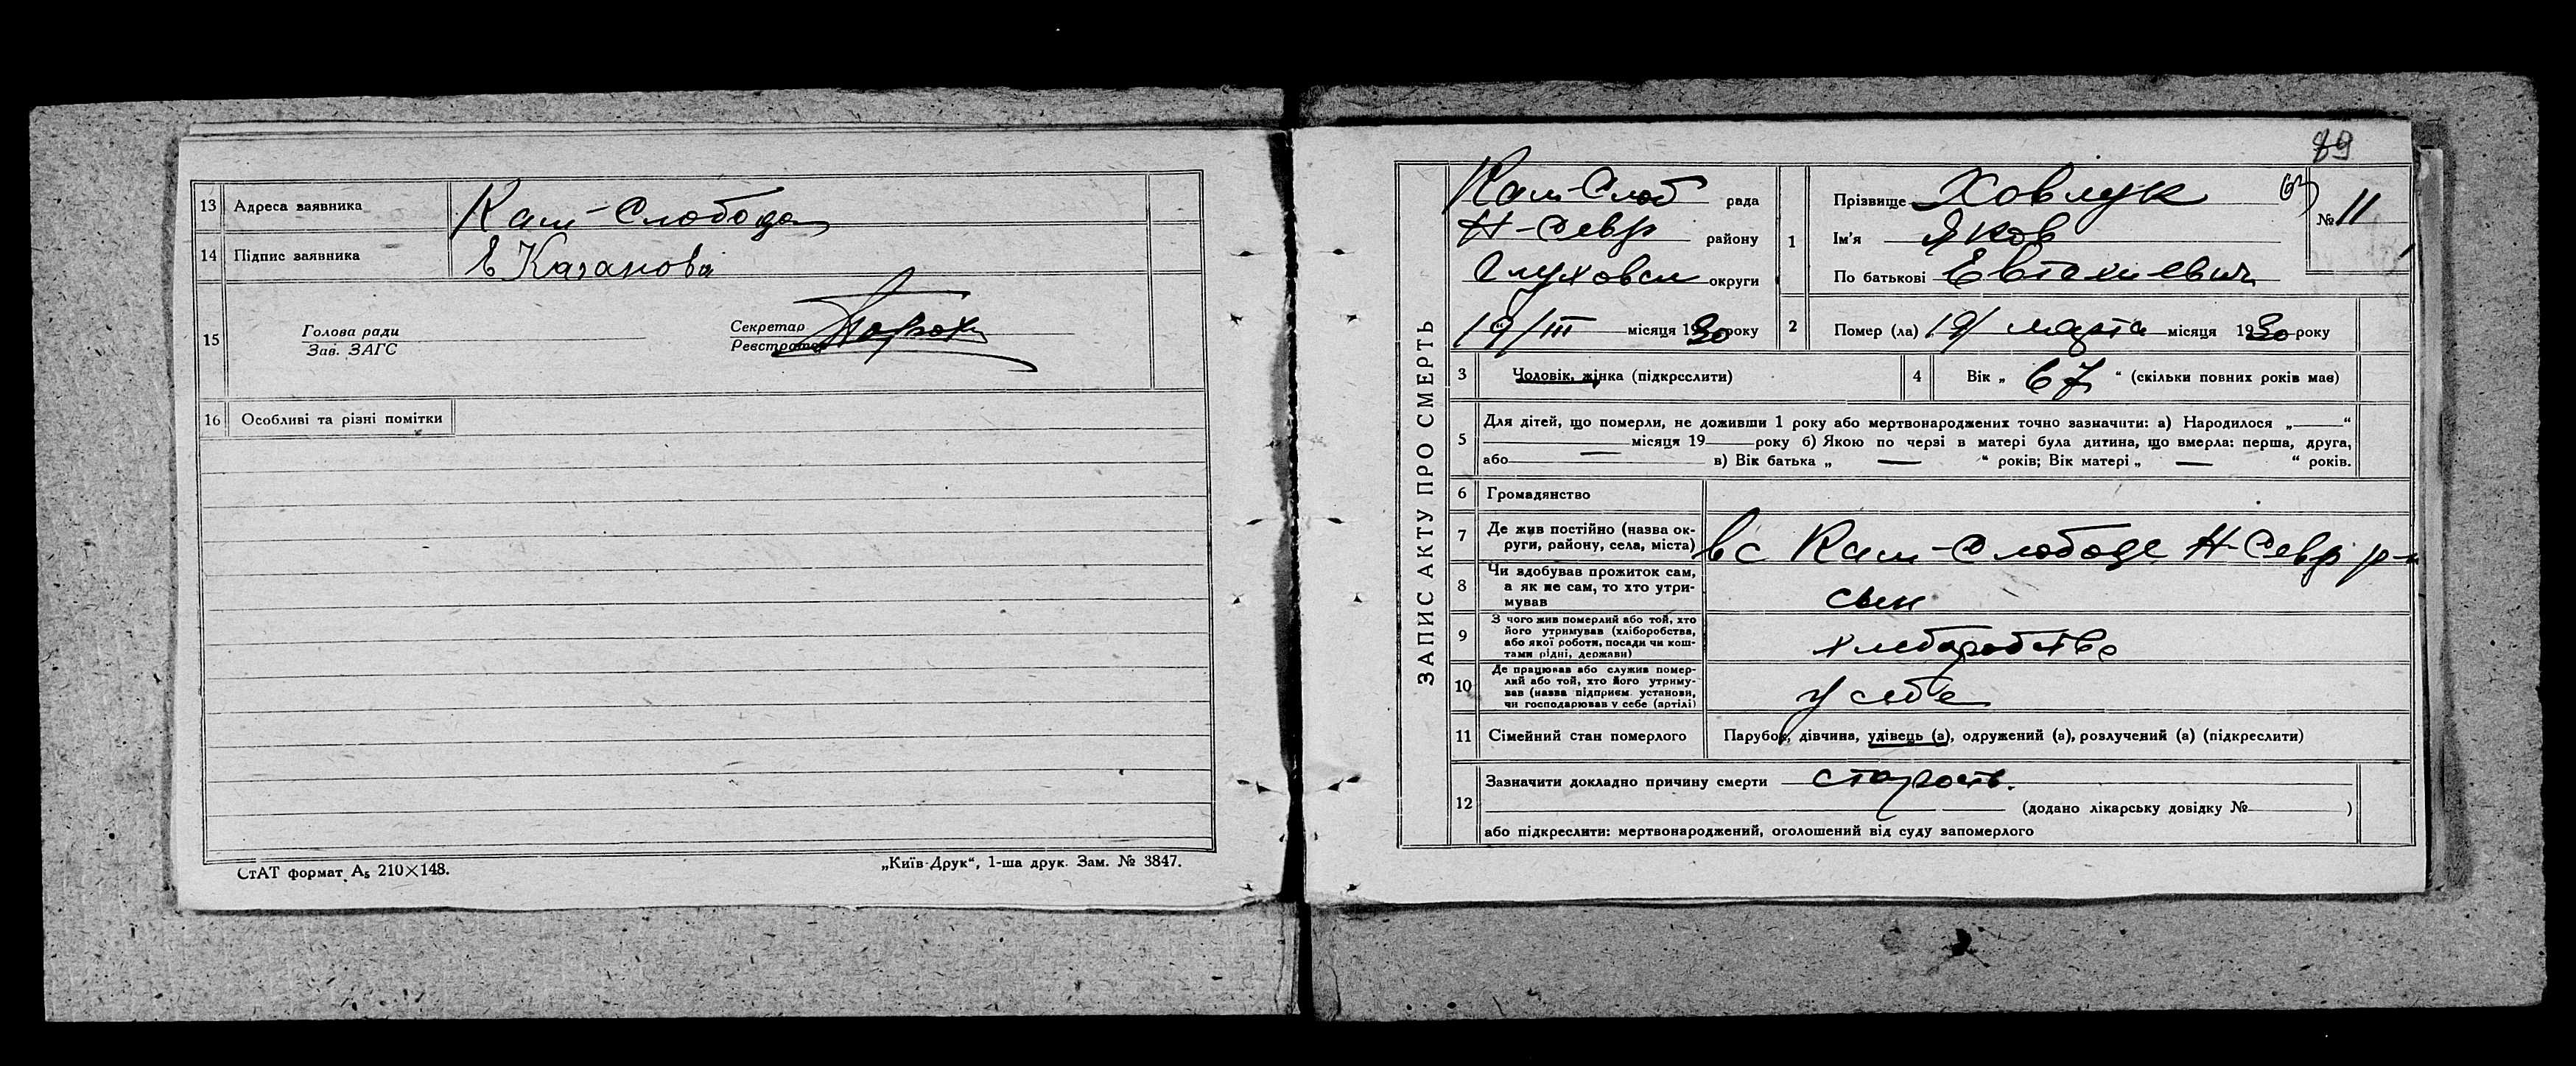 13 Адреса заявника Кам-Слобода
14 Підпис заявника Е Казанова
15 Голова ради
Зав. ЗАГС
Секретар
Реєстратор
16 Особливі та різні помітки
СтАТ формат А₅ 210×148.
„Київ-Друк“, 1-ша друк. Зам. № 3847.
89
ЗАПИС АКТУ ПРО СМЕРТЬ
Кам-Слоб рада
Н-Севр району
Глуховск округи
19/III місяця 1930 року
1 Прізвище Ховлук
Ім'я Яков
По батькові Евтихиевич
№ 11
2 Помер (ла) 19/ марта місяця 1930 року
3 Чоловік, жінка (підкреслити)
4 Вік „ 67 “ (скільки повних років мав)
5 Для дітей, що померли, не доживши 1 року або мертвонароджених точно зазначити: а) Народилося „ — “
місяця 19 року б) Якою по черзі в матері була дитина, що вмерла: перша, друга,
або — в) Вік батька „ — “ років; Вік матері „ — “ років.
6 Громадянство
7 Де жив постійно (назва ок-
руги, району, села, міста) в с Кам-Слободе Н-Севр р-н
8 Чи здобував прожиток сам,
а як не сам, то хто утри-
мував сын
9 З чого жив померлий або той, хто
його утримував (хліборобства,
або якої роботи, посади чи кош-
тами рідні, держави) хлеборобство
10 Де працював або служив помер-
лий або той, хто його утриму-
вав (назва підприєм. установи,
чи господарював у себе (артілі) у себе
11 Сімейний стан померлого Парубок, дівчина, удівець (а), одружений (а), розлучений (а) (підкреслити)
12 Зазначити докладно причину смерти старость.
(додано лікарську довідку № )
або підкреслити: мертвонароджений, оголошений від суду запомерлого